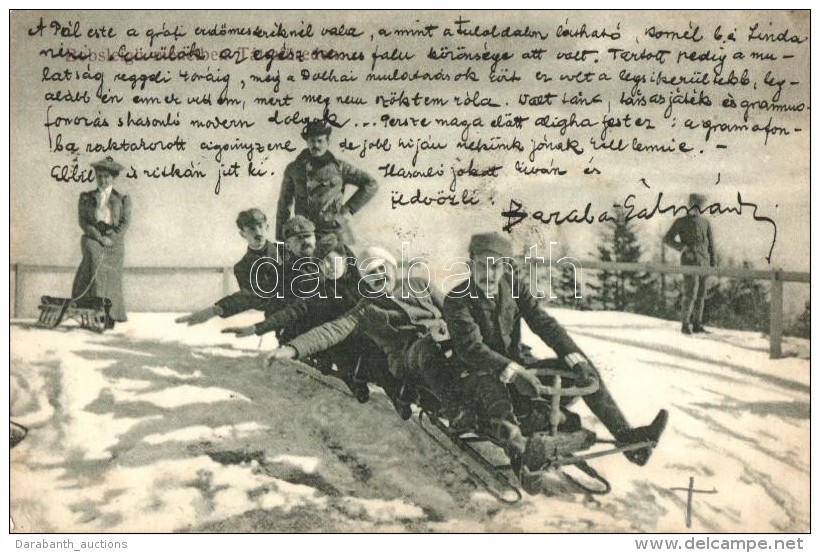 A Pál este a gráfi erdőmestéréknél vala, a mint a túloldalon látható, Kornél b. és Linda
néni az egész nemes falu közönsége ott volt. Tartott pedig a mu-
latság reggeli 4 óráig, még a Dolhai mulatságok közt ez volt a legsikerültebb, leg-
alább én ennek vettem, mert meg nem szöktem róla. Volt tánc, társasjáték és grammo-
fonozás s hasonló modern dolgok... Persze maga előtt aligha fest ez: a gramafon-
ba raktározott cigányzene, de jobb híján nekünk jónak kell lennie. —
Ebből is ritkán jut ki. Hasonló jókat kíván és
üdvözli:
Barabás Kálmán
darabanth.com
Darabanth_auctions
www.delcampe.net